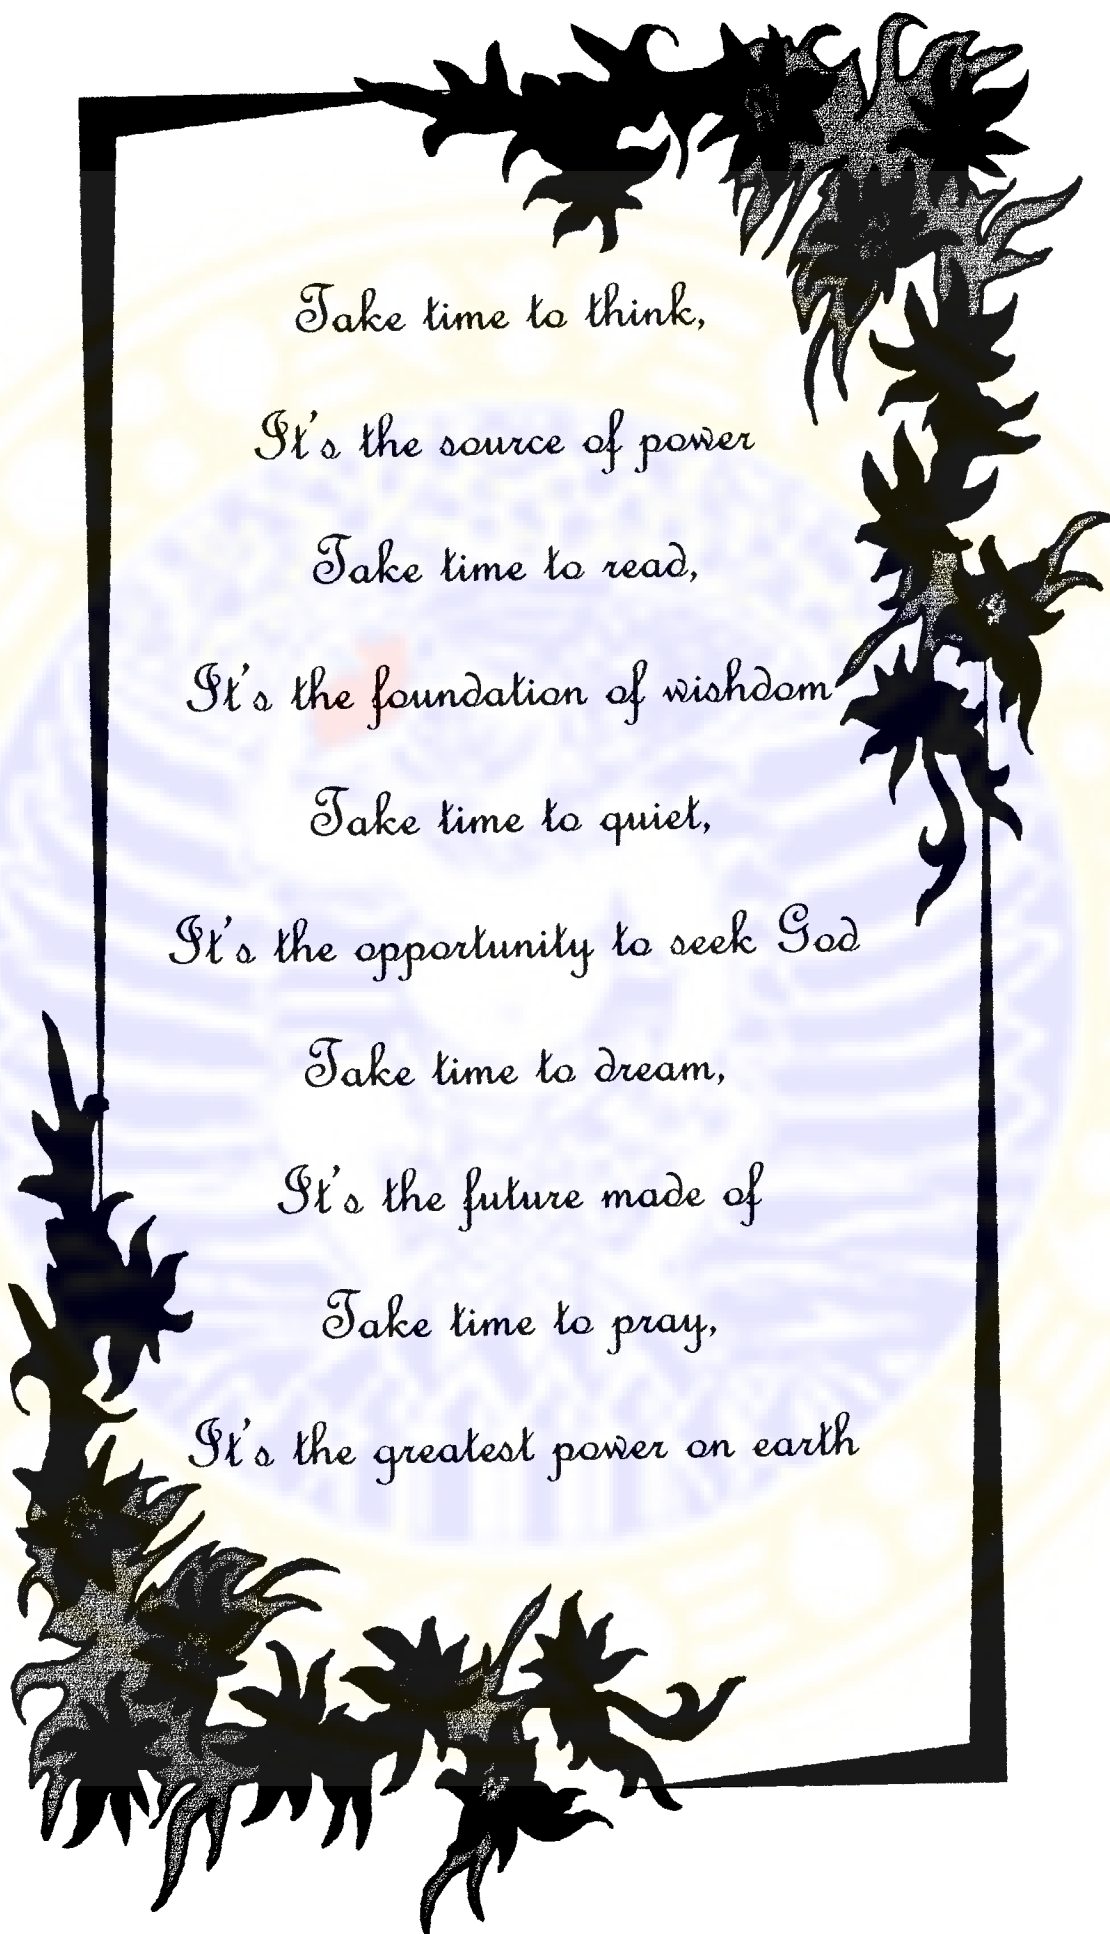 Take time to think,
It's the source of power
Take time to read,
It's the foundation of wishdom
Take time to quiet,
It's the opportunity to seek God
Take time to dream,
It's the future made of
Take time to pray,
It's the greatest power on earth